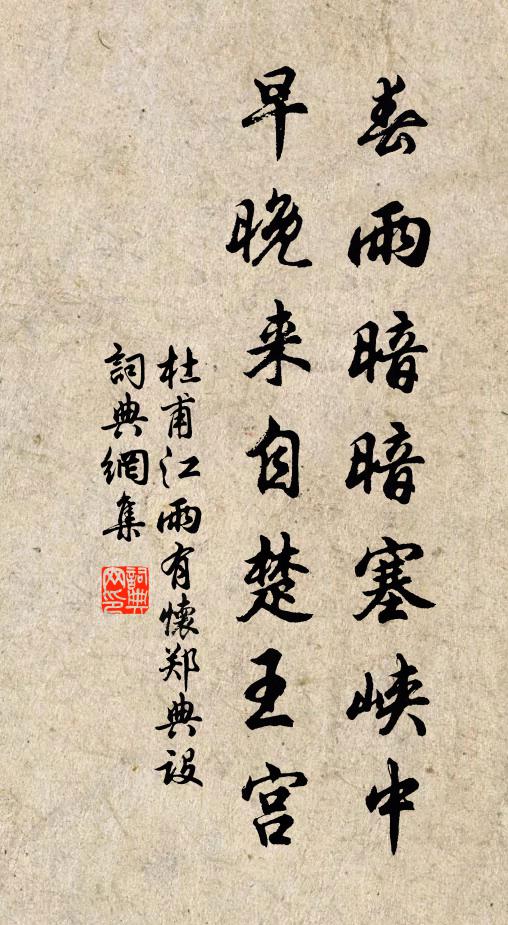 春雨暗暗塞峡中
早晚来自楚王宫
杜甫江雨有懷郑典设
詞典網集
詞典
网印